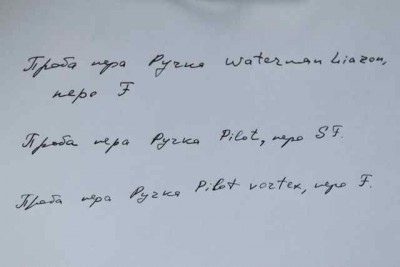 Проба пера Ручка Waterman Liazon,
перо F
Проба пера Ручка Pilot, перо SF.
Проба пера Ручка Pilot vortex, перо F.